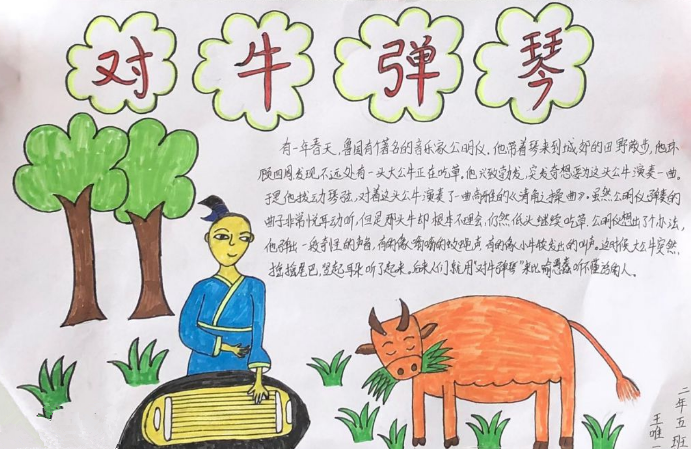 对牛弹琴
有一年春天，鲁国有个著名的音乐家公明仪。他带着琴来到城郊的田野散步，他环
顾四周发现，不远处有一头大公牛正在吃草，他兴致勃发，突发奇想要为这头公牛演奏一曲。
于是他拨动琴弦，对着这头公牛演奏了一曲高雅的《清角之操曲》。虽然公明仪弹奏的
曲子非常悦耳动听，但是那头牛却根本不理会，仍然低头继续吃草。公明仪想出了个办法，
他弹出一段奇怪的声音，有的像嗡嗡的蚊蝇声，有的像小牛犊发出的叫声。这时候大公牛突然
摇摇尾巴，竖起耳朵听了起来。后来人们就用“对牛弹琴”来比喻愚蠢听不懂的人。
二年五班
王唯